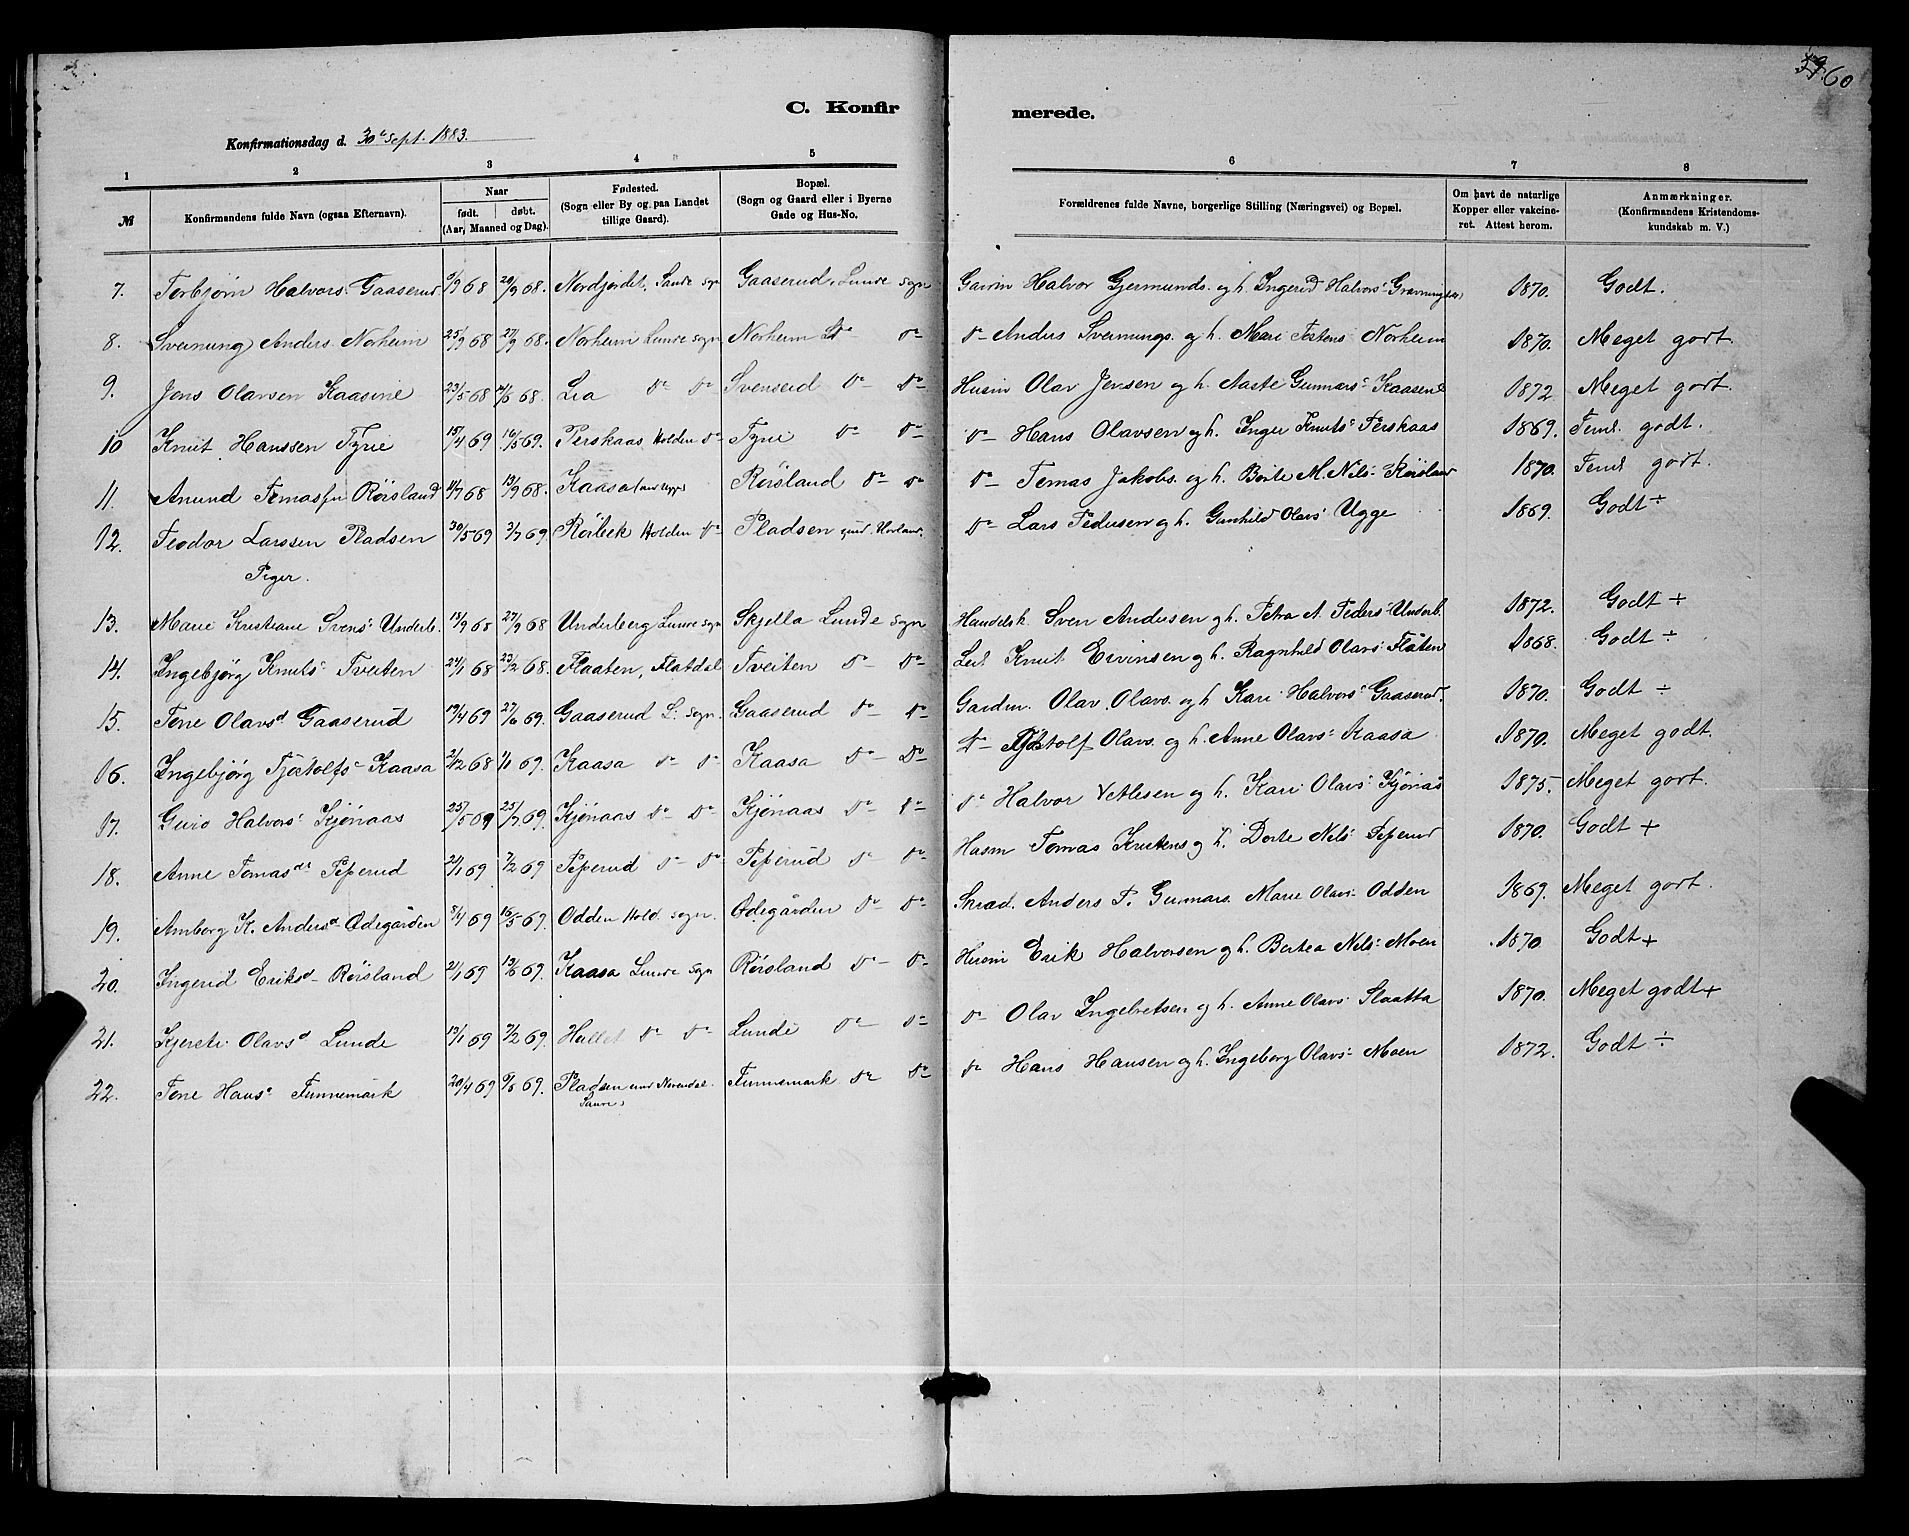 59. 60
C. Konfirmerede.
Konfirmationsdag d. 30te Sept. 1883.
1 2 3 4 5 6 7 8
№ Konfirmandens fulde Navn (ogsaa Efternavn). Naar født. døbt. (Aar, Maaned og Dag). Fødested. (Sogn eller By og paa Landet tillige Gaard). Bopæl. (Sogn og Gaard eller i Byerne Gade og Hus-No. Forældrenes fulde Navne, borgerlige Stilling (Næringsvei) og Bopæl. Om havt de naturlige Kopper eller vakcineret. Attest herom. Anmærkninger. (Konfirmandens Kristendomskundskab m. V.)
7. Torbjørn Halvors. Gaaserud 9/9 68 20/9 68. Nordjordet, Saude sgn Gaaserud, Lunde sogn Halvor Gjermunds. og h. Ingerid Halvors 1870. Godt.
8. Sveinung Anders. Norheim 25/9 68 27/9 68. Norheim Lunde sogn Norheim Do Do Anders Sveinungs. og h. Mari Norheim 1870. Meget godt.
9. Jens Olavsen Kaasine 23/5 68 68. Lia Do Do Svenseid Do Do Husm Olav Jensen og h. Aaste Gunnars Kaasene 1872 Meget godt.
10 Knut Hanssen Tyrie 15/4 69 16/5 69. Perskaas Holden Do Tyrie Do Do Do Hans Olavsen og h. Inger Knuts Perskaas 1869. Teml. godt.
11. Anund Tomassen Røisland 4/7 68 13/9 68. Kaasa Røisland Do Do Do Tomas Jakobs. og h. Berte M. Nils Røisland 1870. Teml godt.
12. Teodor Larssen Pladsen 30/5 69 3/7 69 Røibek Holden Do Pladsen und. Do Lars Pedersen og h. Gunhild Olavs Ugge 1869. Godt ÷
Piger.
13. Marie Kristiane Svens Underb. 18/9 68 27/9 68 Underberg Lunde sogn Skjella Lunde sogn Handelsk Sven Andersen og h. Petra A. Peders Underb. 1872. Godt +
14. Ingebjørg Knuts Tveiten 24/1 68 23/2 68. Flaaten, Flatdal Tveiten Do Do Knut Eivinsen og h. Ragnhild Olavs Flåten 1868. Godt ÷
15. Tone Olavsd Gaaserud 19/4 69 27/6 69. Gaaserud L. sogn. Gaaserud Do Do Gardm. Olav Olavs. og h. Kari Halvors Gaaserud. 1870. Godt ÷
16. Ingebjørg Tjøstolfs Kaasa 2/12 68 1/1 69. Kaasa Do Do Kaasa Do Do Do Tjøstolf Olavs. og h. Anne Olavs Kaasa 1870. Meget godt.
17. Guro Halvors Kjønaas 25/5 69 25/7 69. Kjønaas Do Do Kjønaas Do Do Do Halvor Vetlesen og h. Kari Olavs Kjønås 1875. Meget godt.
18. Anne Tomasdr Peperud 21/1 69 7/2 69 Peperud Do Do Peperud Do Do Husm Tomas Kristens og h. Dorte Nils Peperud 1870. Godt +
19. Amborg K. Andersd Ødegården 69 16/5 69. Odden Hold. sogn. Ødegården Do Do Skræd. Anders P. Gunnars. Marie Olavs Odden 1869. Meget godt.
20. Ingerid Eriksd Røisland 2/1 69 13/6 69. Kaasa Lunde sogn Røisland Do Do Husm Erik Halvorsen og h. Bertea Nils Moen 1870 Godt +
21. Kjersti Olavsd Lunde 13/1 69 7/2 69. Hallet Do Do Lunde Do Do Do Olav Ingebretsen og h. Anne Olavs Slaatta 1870. Meget godt +
22. Tone Hans Finnemark 20/4 69 6/6 69. Pladsen und Finnemark Do Do Do Hans Hansen og h. Ingeborg Olavs Moen 1872. Godt ÷